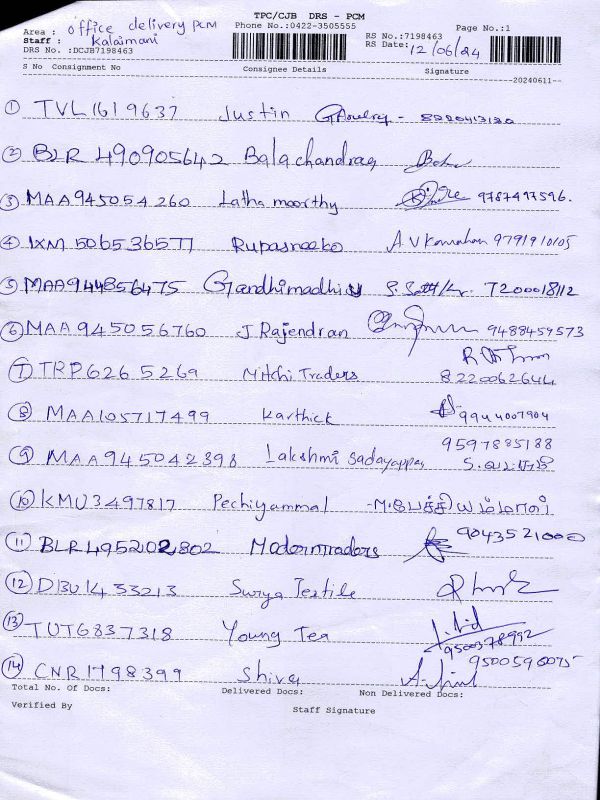 TPC/CJB DRS - PCM
Area : office delivery PCM Phone No.:0422-3505555 Page No.:1
Staff : Kalaimani RS No.:7198463
DRS No. :DCJB7198463 RS Date: 12/06/24
S No Consignment No Consignee Details Signature
20240611
1 TVL1619637 Justin 8220413120
2 BLR 490905642 Balachandran
3 MAA945054260 Latha moorthy 9787497596.
4 IXM 506536577 Rupasreeko A V Kannahan 9791910105
5 MAA944856475 Gandhimadhi 7200018112
6 MAA945056760 J Rajendran 9488459573
7 TRP6265269 Mitchi Traders 8220062644
8 MAA105717499 Karthick 9944007904
9 MAA945042398 Lakshmi Sadayappan 9597885188
10 KMU3497817 Pechiyammal M.பேச்சியம்மாள்
11 BLR495202802 Moderntraders 9043521000
12 DBU1433213 Surya Textile
13 TUT6837318 Young Tea 9500378992
14 CNR1798399 Shiva 9500596075
Total No. Of Docs: Delivered Docs: Non Delivered Docs:
Verified By Staff Signature